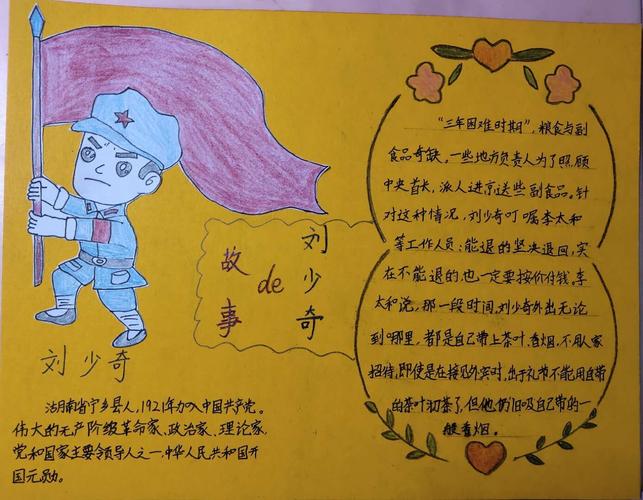 刘少奇
故事
de
刘少奇
沽月南省宁乡县人，1921年加入中国共产党。
伟大的无产阶级革命家、政治家、理论家，
党和国家主要领导人之一，中华人民共和国开
国元勋。
“三年困难时期”，粮食与副
食品奇缺，一些地方负责人为了照顾
中央首长，派人进京送些副食品。针
对这种情况，刘少奇叮嘱李太和
等工作人员：能退的坚决退回，实
在不能退的也一定要按价付钱。李
太和说，那一段时间，刘少奇外出无论
到哪里，都是自己带上茶叶、香烟，不用人家
招待，即使是在接见外宾时，出于礼节不能用自带
的茶叶沏茶了，但他仍旧吸自己带的一
般香烟。